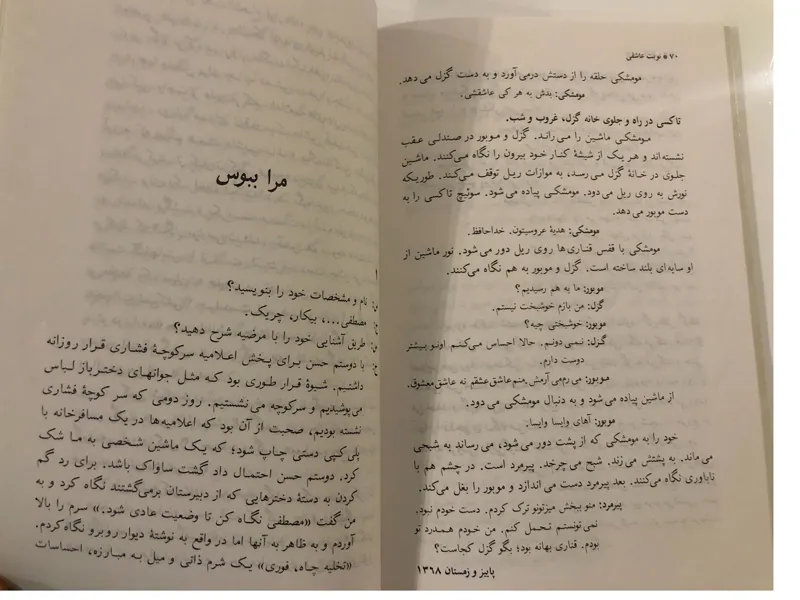 ۷۰ * نوبت عاشقی
مومشکی حلقه را از دستش درمی‌آورد و به دست گزل می‌دهد.
مومشکی: بدش به هر کی عاشقشی.
تاکسی در راه و جلوی خانه گزل، غروب و شب.
مومشکی ماشین را می‌راند. گزل و موبور در صندلی عقب
نشسته‌اند و هر یک از شیشهٔ کنار خود بیرون را نگاه می‌کنند. ماشین
جلوی در خانهٔ گزل می‌رسد، به موازات ریل توقف می‌کند. طوریکه
نورش به روی ریل می‌دود. مومشکی پیاده می‌شود. سوئیچ تاکسی را به
دست موبور می‌دهد.
مومشکی: هدیهٔ عروسیتون. خداحافظ.
مومشکی با قفس قناری‌ها روی ریل دور می‌شود. نور ماشین از
او سایه‌ای بلند ساخته است. گزل و موبور به هم نگاه می‌کنند.
موبور: ما به هم رسیدیم؟
گزل: من بازم خوشبخت نیستم.
موبور: خوشبختی چیه؟
گزل: نمی‌دونم. حالا احساس می‌کنم اونو بیشتر
دوست دارم.
موبور: می‌رم می‌آرمش. منم عاشق عشقم نه عاشق معشوق.
از ماشین پیاده می‌شود و به دنبال مومشکی می‌دود.
موبور: آهای وایسا وایسا.
خود را به مومشکی که از پشت دور می‌شود، می‌رساند به شبحی
می‌ماند. به پشتش می‌زند. شبح می‌چرخد. پیرمرد است. در چشم هم با
ناباوری نگاه می‌کنند. بعد پیرمرد دست می‌اندازد و موبور را بغل می‌کند.
پیرمرد: منو ببخش میزتونو ترک کردم. دست خودم نبود.
نمی‌تونستم تحمل کنم. من خودم همدرد تو
بودم. قناری بهانه بود؛ بگو گزل کجاست؟
پاییز و زمستان ۱۳۶۸
مرا ببوس
۱
س: نام و مشخصات خود را بنویسید؟
ج: مصطفی...، بیکار، چریک.
س: طریق آشنایی خود را با مرضیه شرح دهید؟
ج: با دوستم حسن برای پخش اعلامیه سرکوچهٔ فشاری قرار روزانه
داشتیم. شیوهٔ قرار طوری بود که مثل جوانهای دخترباز لباس
می‌پوشیدیم و سرکوچه می‌نشستیم. روز دومی که سر کوچهٔ فشاری
نشسته بودیم، صحبت از آن بود که اعلامیه‌ها در یک مسافرخانه با
پلی‌کپی دستی چاپ شود؛ که یک ماشین شخصی به ما شک
کرد. دوستم حسن احتمال داد گشت ساواک باشد. برای رد گم
کردن به دستهٔ دخترهایی که از دبیرستان برمی‌گشتند نگاه کرد و به
من گفت «مصطفی نگاه کن تا وضعیت عادی شود.» سرم را بالا
آوردم و به ظاهر به آنها اما در واقع به نوشتهٔ دیوار روبرو نگاه کردم.
«تخلیه چاه، فوری» یک شرم ذاتی و میل به مبارزه، احساسات